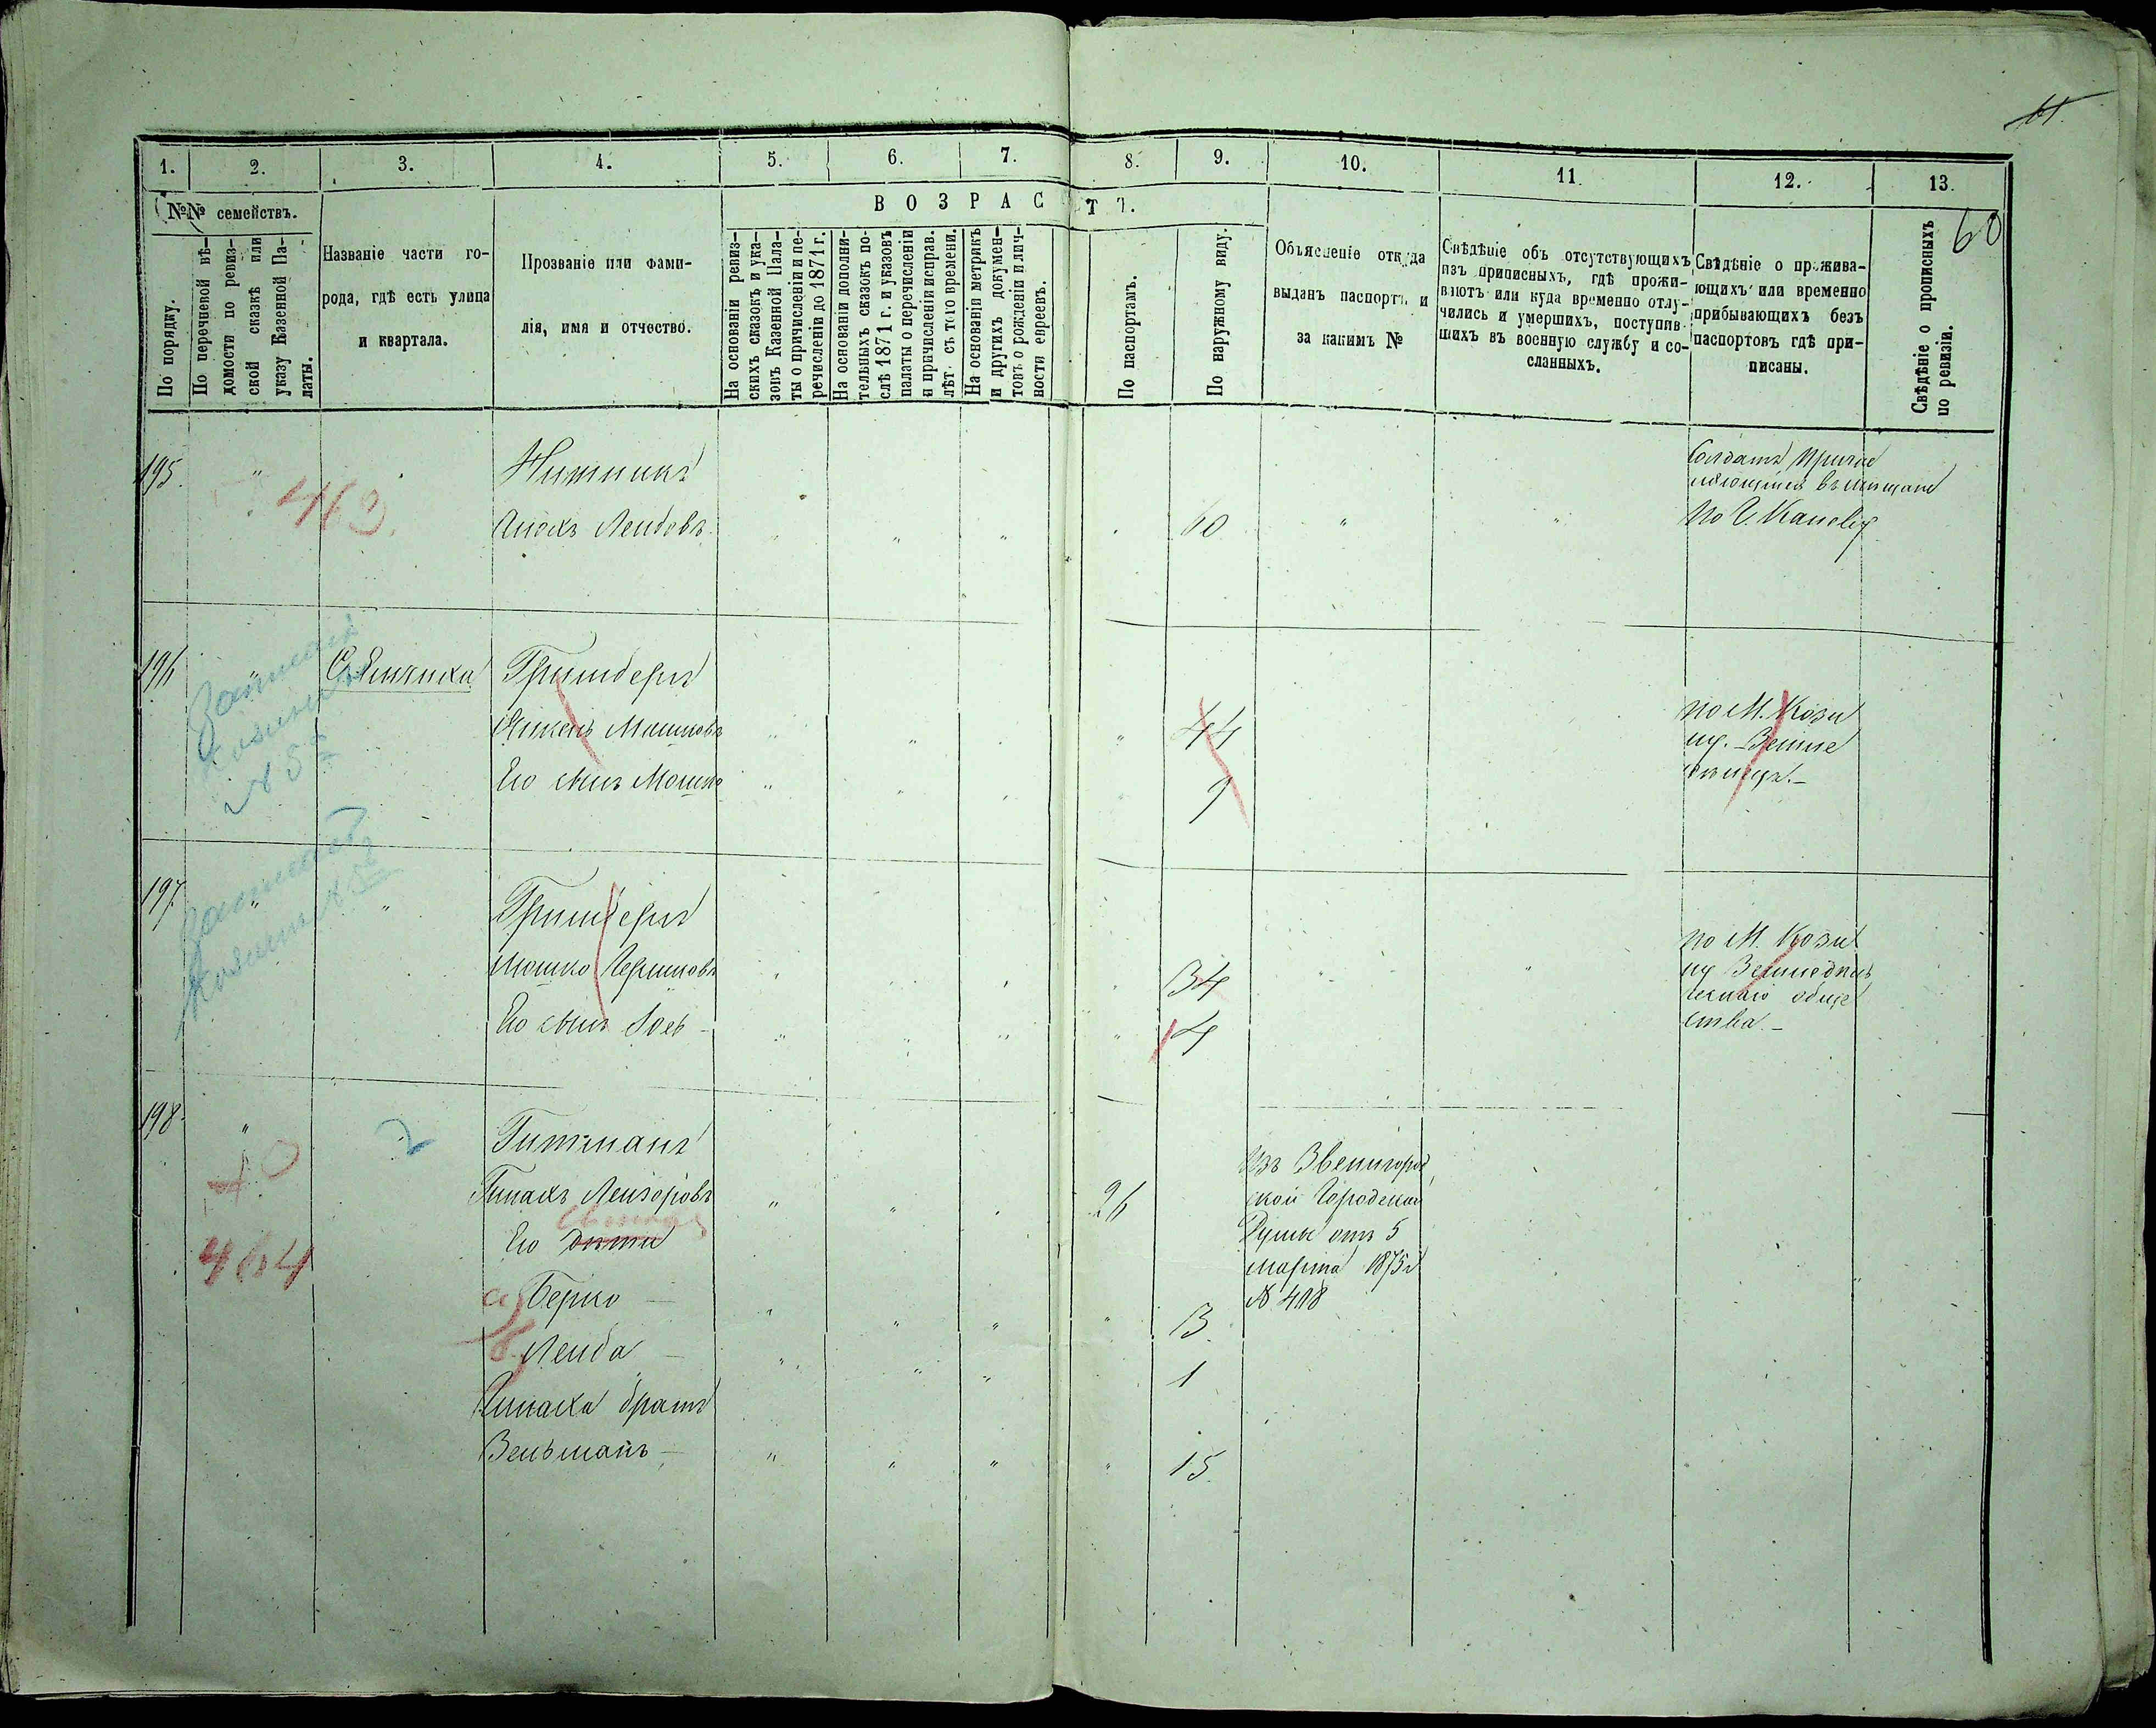 61.
60
1. 2. 3. 4. 5. 6. 7. 8. 9. 10. 11. 12. 13.
№№ семействъ.
В О З Р А С Т Ъ.
По порядку.
По перечневой вѣ-
домости по ревиз-
ской сказкѣ или
указу Казенной Па-
латы.
Названіе части го-
рода, гдѣ есть улица
и квартала.
Прозваніе или фами-
лія, имя и отчество.
На основаніи ревиз-
скихъ сказокъ и ука-
зовъ Казенной Пала-
ты о причисленіи и пе-
речисленіи до 1871 г.
На основаніи дополни-
тельныхъ сказокъ по-
слѣ 1871 г. и указовъ
палаты о перечисленіи
и причисленіи исправ.
лѣт. съ того времени.
На основаніи метрикъ
и другихъ докумен-
товъ о рожденіи и лич-
ности евреевъ.
По паспортамъ.
По наружному виду.
Объясненіе откуда
выданъ паспортъ и
за какимъ №
Свѣдѣніе объ отсутствующихъ
изъ приписныхъ, гдѣ прожи-
ваютъ или куда временно отлу-
чились и умершихъ, поступив-
шихъ въ военную службу и со-
сланныхъ.
Свѣдѣніе о прожива-
ющихъ или временно
прибывающихъ безъ
паспортовъ гдѣ при-
писаны.
Свѣдѣніе о прописныхъ
по ревизіи.
195. " 463. Нитникъ
Лейбовъ 60
Солдатъ
по Г. Каневу
196 "
Гринбергъ
Мошковъ 44
Его сынъ Мошко 9
по М. Кози
ну. Земле
197. " "
Гринбергъ
Мошко Гершковъ 34
Его сынъ 4
по М. Кози
ну Земледѣль
ческаго обще
ства. –
198. " 2 Гитманъ
Пинхасъ Лейзоровъ 26
Его дѣти
464
а) Берко – 3.
б) Лейба – 1
братъ
Зельманъ – 15.
Изъ Звенигород
ской Городской
Думы отъ 5
марта 1875 г
№ 408